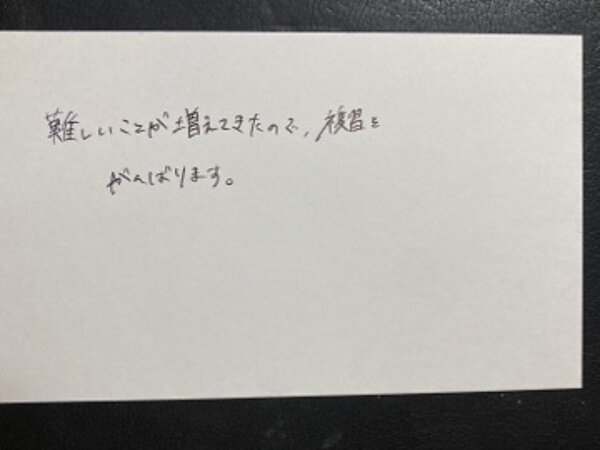 難しいことが増えてきたので,復習を
がんばります。